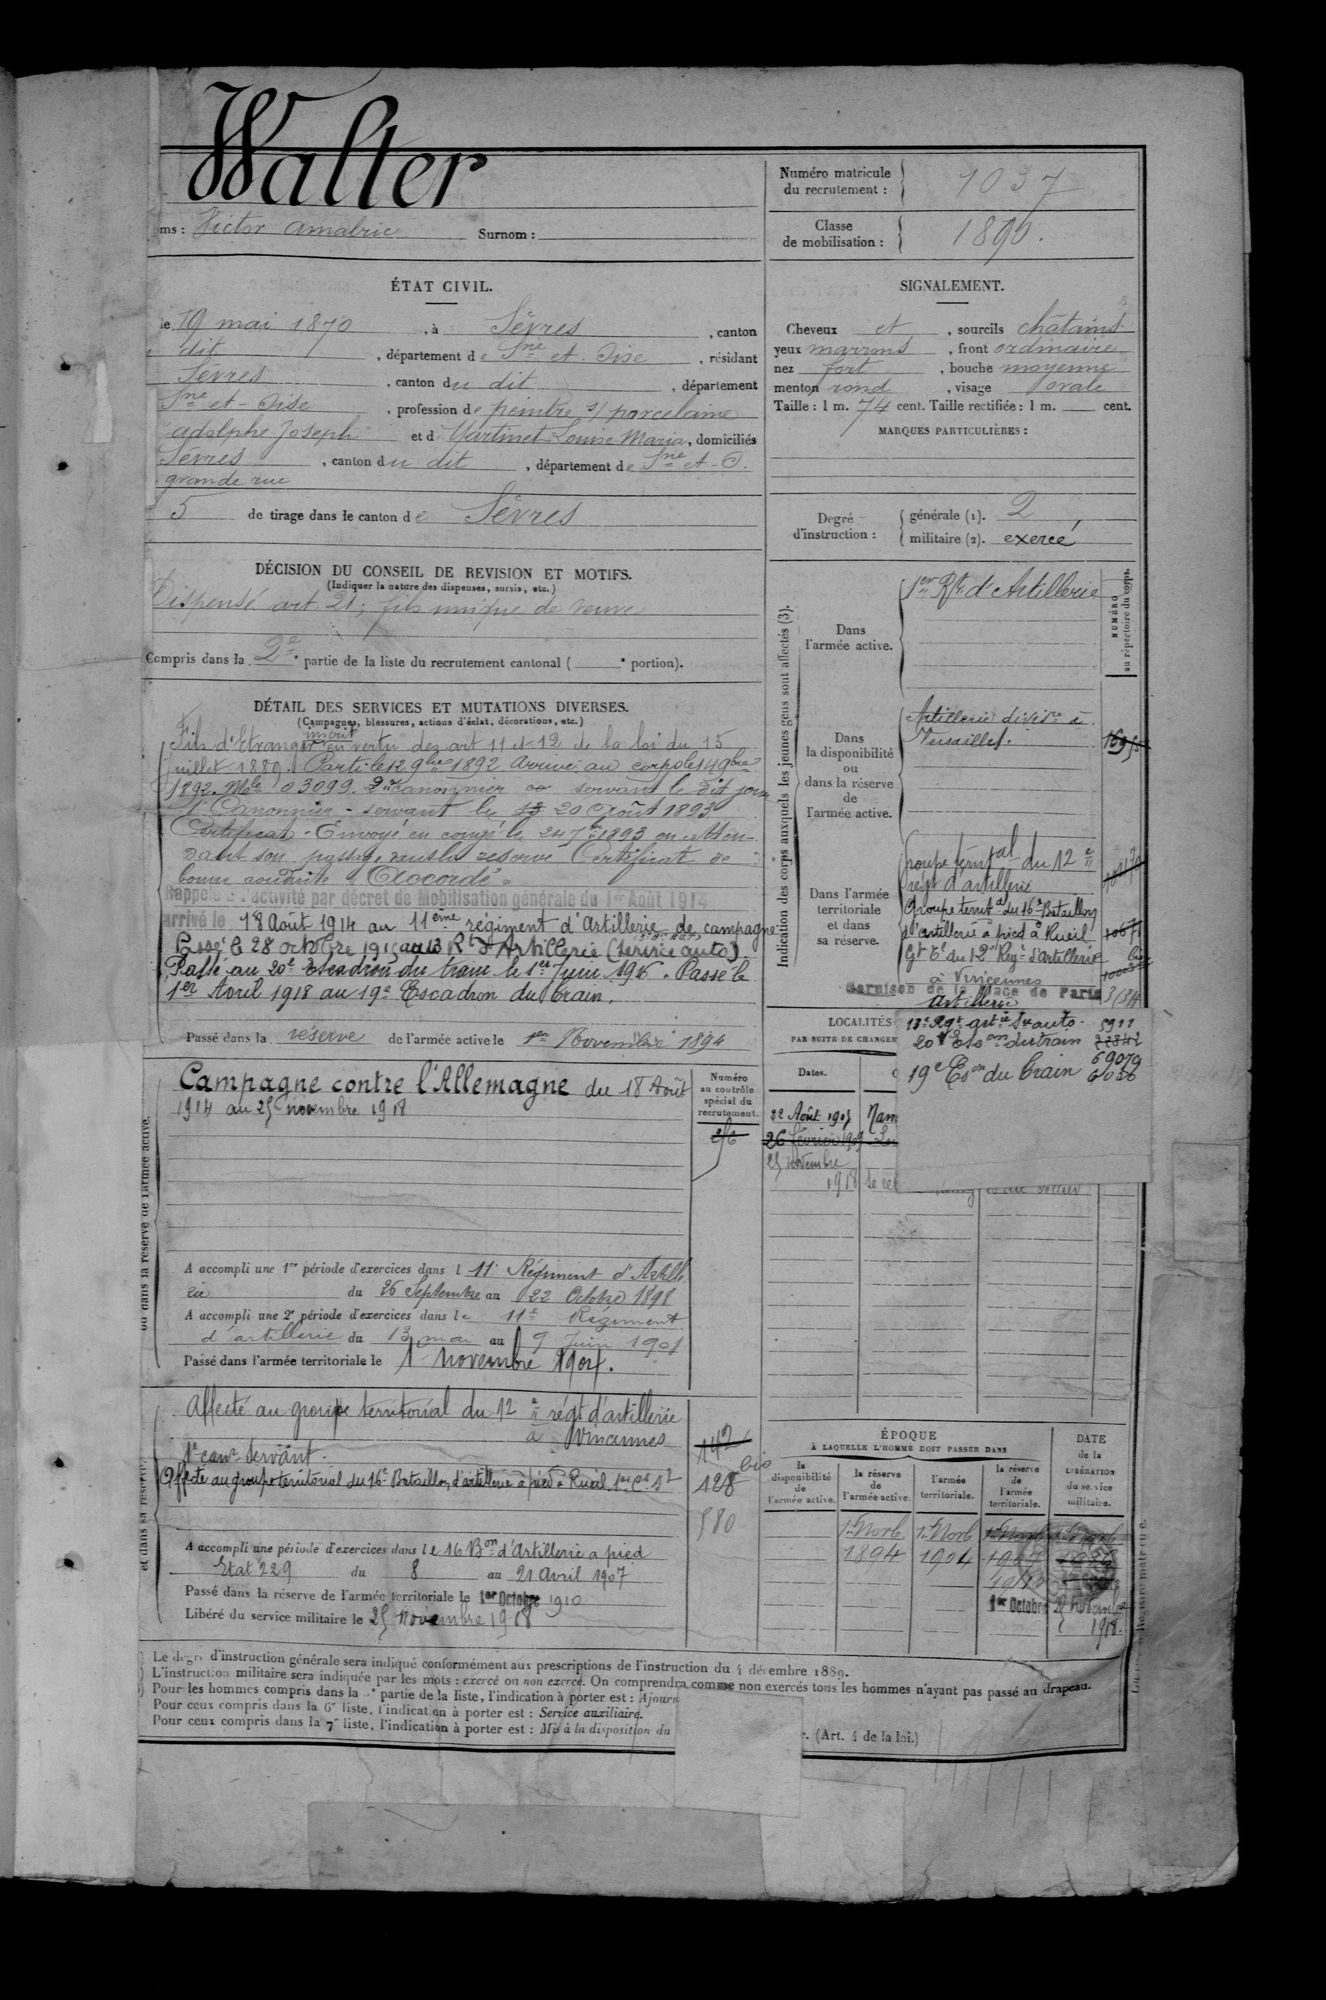 Walter
Numéro matricule
du recrutement :
1037
ms : Victor Amalric Surnom :
Classe
de mobilisation :
1890.
ÉTAT CIVIL.
le 19 mai 1870, à Sèvres, canton
dit, département de Sne et Oise, résidant
Sèvres, canton du dit, département
Sne et-Oise, profession de peintre s/ porcelaine
adolphe Joseph et d Martinet Louise Maria, domiciliés
Sèvres, canton du dit, département de Sne et-O.
grande rue
5 de tirage dans le canton de Sèvres
SIGNALEMENT.
Cheveux et, sourcils châtains
yeux marrons, front ordinaire
nez fort, bouche moyenne
menton rond, visage ovale
Taille : 1 m. 74 cent. Taille rectifiée : 1 m. cent.
MARQUES PARTICULIÈRES :
Degré
d'instruction :
générale (1). 2
militaire (2). exercé
DÉCISION DU CONSEIL DE REVISION ET MOTIFS.
(Indiquer la nature des dispenses, sursis, etc.)
Dispensé art. 21, fils unique de veuve
Compris dans la 2e partie de la liste du recrutement cantonal ( e portion).
DÉTAIL DES SERVICES ET MUTATIONS DIVERSES.
(Campagnes, blessures, actions d'éclat, décorations, etc.)
inscrit
Fils d'Etranger en vertu des art 11 et 12 de la loi du 15
juillet 1889. Parti le 12 9bre 1892 arrivé au corps le 14 9bre
1892. Mle 03099. 2e canonnier servant le dit jour
1er Canonnier-servant le 20 Août 1893
Certificat - Envoyé en congé le 24 7bre 1893 en atten-
dant son passage dans la réserve Certificat de
bonne conduite "Accordé"
Rappelé à l'activité par décret de Mobilisation générale du 1er Août 1914
arrivé le 18 Août 1914 au 11ème régiment d'Artillerie de campagne
Passé le 28 octobre 1915 au 13 Rt d'Artillerie (service auto)
Passé au 20e Escadron du train le 1er Juin 1916. Passé le
1er Avril 1918 au 19e Escadron du train.
Passé dans la réserve de l'armée active le 1er Novembre 1894
Indication des corps auxquels les jeunes gens sont affectés (3).
NUMÉRO
au répertoire du corps.
Dans
l'armée active.
1er Rgt d'Artillerie
Dans
la disponibilité
ou
dans la réserve
de
l'armée active.
Artillerie divisre à
Versailles.
Dans l'armée
territoriale
et dans
sa réserve.
Groupe territal du 12e
régt d'artillerie
Groupe territal du 16e Bataillon
d'artillerie à pied à Rueil
Gt Tal du 12e Rég. d'artillerie
à Vincennes
Garnison de la Place de Paris
Artillerie
LOCALITÉS
PAR SUITE DE CHANGEM
Dates.
13e Rgt artie Sce auto. 5911
20e Escon du train
19e Eson du train
22 Août 1905 Nam
26 février 1909
25 novembre
1918 se re
ou dans la réserve de l'armée active.
Campagne contre l'Allemagne du 18 Août
1914 au 25 novembre 1918
Numéro
au contrôle
spécial du
recrutement.
A accompli une 1re période d'exercices dans l 11e Régiment d'Artille
rie du 26 Septembre au 22 Octobre 1898
A accompli une 2e période d'exercices dans le 11e Régiment
d'artillerie du 13 mai au 9 Juin 1901
Passé dans l'armée territoriale le 1er novembre 1904.
et dans sa réserve.
Affecté au groupe territorial du 12e régt d'artillerie
à Vincennes
1er canr servant.
Affecté au groupe territorial du 16e Bataillon d'artillerie à pied à Rueil
142
bis
128
580
A accompli une période d'exercices dans le 16 Bon d'Artillerie à pied
Etat 229 du 8 au 21 Avril 1907
Passé dans la réserve de l'armée territoriale le 1er Octobre 1910
Libéré du service militaire le 25 novembre 1918
ÉPOQUE
À LAQUELLE L'HOMME DOIT PASSER DANS
la
disponibilité
de
l'armée active.
la réserve
de
l'armée active.
l'armée
territoriale.
la réserve
de
l'armée
territoriale.
DATE
de la
LIBÉRATION
du service
militaire.
1er Novb
1894
1er Novb
1904
1er Octobre
25 novembre
1918.
Le degré d'instruction générale sera indiqué conformément aux prescriptions de l'instruction du 4 décembre 1889.
L'instruction militaire sera indiquée par les mots : exercé ou non exercé. On comprendra comme non exercés tous les hommes n'ayant pas passé au drapeau.
Pour les hommes compris dans la e partie de la liste, l'indication à porter est : Ajourn
Pour ceux compris dans la 6e liste, l'indication à porter est : Service auxiliaire.
Pour ceux compris dans la 7e liste, l'indication à porter est : Mis à la disposition du . (Art. 4 de la loi.)